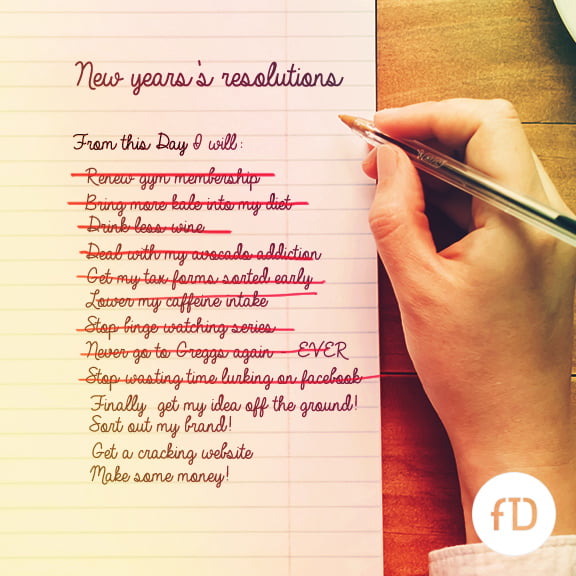 New years's resolutions
From this Day I will:
Renew gym membership
Bring more kale into my diet
Drink less wine
Deal with my avocado addiction
Get my tax forms sorted early
Lower my caffeine intake
Stop binge watching series
Never go to Greggs again - EVER
Stop wasting time lurking on facebook
Finally get my idea off the ground!
Sort out my brand!
Get a cracking website
Make some money!
fD